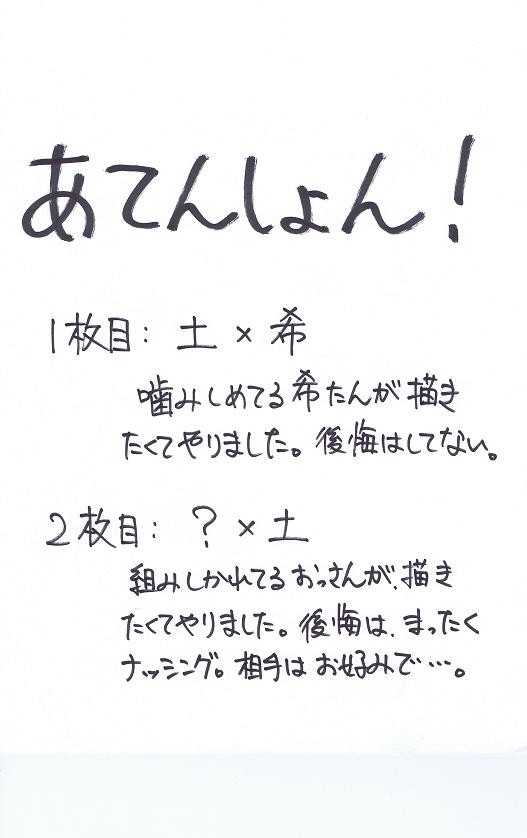 あてんしょん!
1枚目: 土×希
噛みしめてる希たんが描き
たくてやりました。後悔はしてない。
2枚目: ?×土
組みしかれてるおっさんが、描き
たくてやりました。後悔は、まったく
ナッシング。相手はお好みで…。